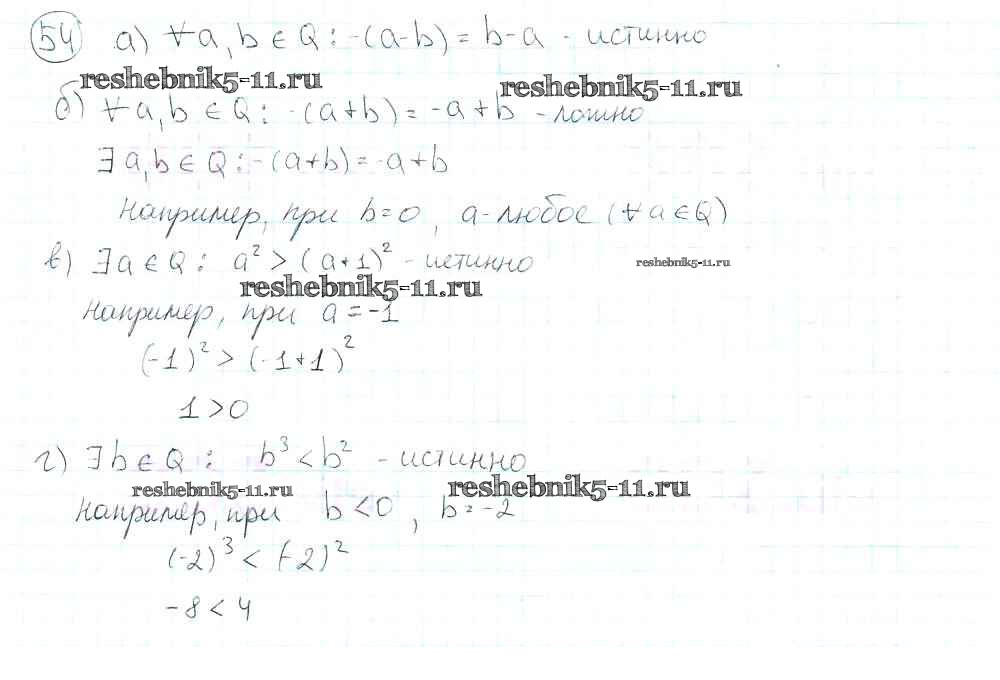 54 а) ∀a, b ∈ Q : -(a-b) = b-a - истинно
reshebnik5-11.ru reshebnik5-11.ru
б) ∀a, b ∈ Q : -(a+b) = -a+b - ложно
∃a, b ∈ Q : -(a+b) = -a+b
Например, при b=0, a-любое (∀a∈Q)
в) ∃a ∈ Q : a² > (a+1)² - истинно reshebnik5-11.ru
reshebnik5-11.ru
Например, при a = -1
(-1)² > (-1+1)²
1 > 0
г) ∃b ∈ Q : b³ < b² - истинно
reshebnik5-11.ru reshebnik5-11.ru
Например, при b < 0, b = -2
(-2)³ < (-2)²
-8 < 4